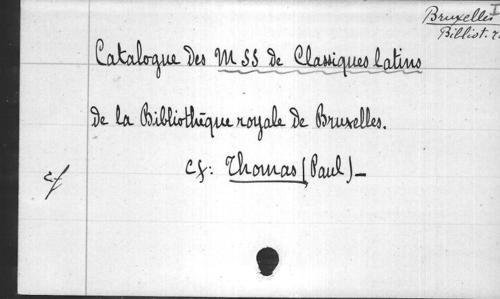 Bruxelles I
Biblioth. r.
Catalogue des MSS de Classiques latins
de la Bibliothèque royale de Bruxelles.
cf: Thomas (Paul)_
cf